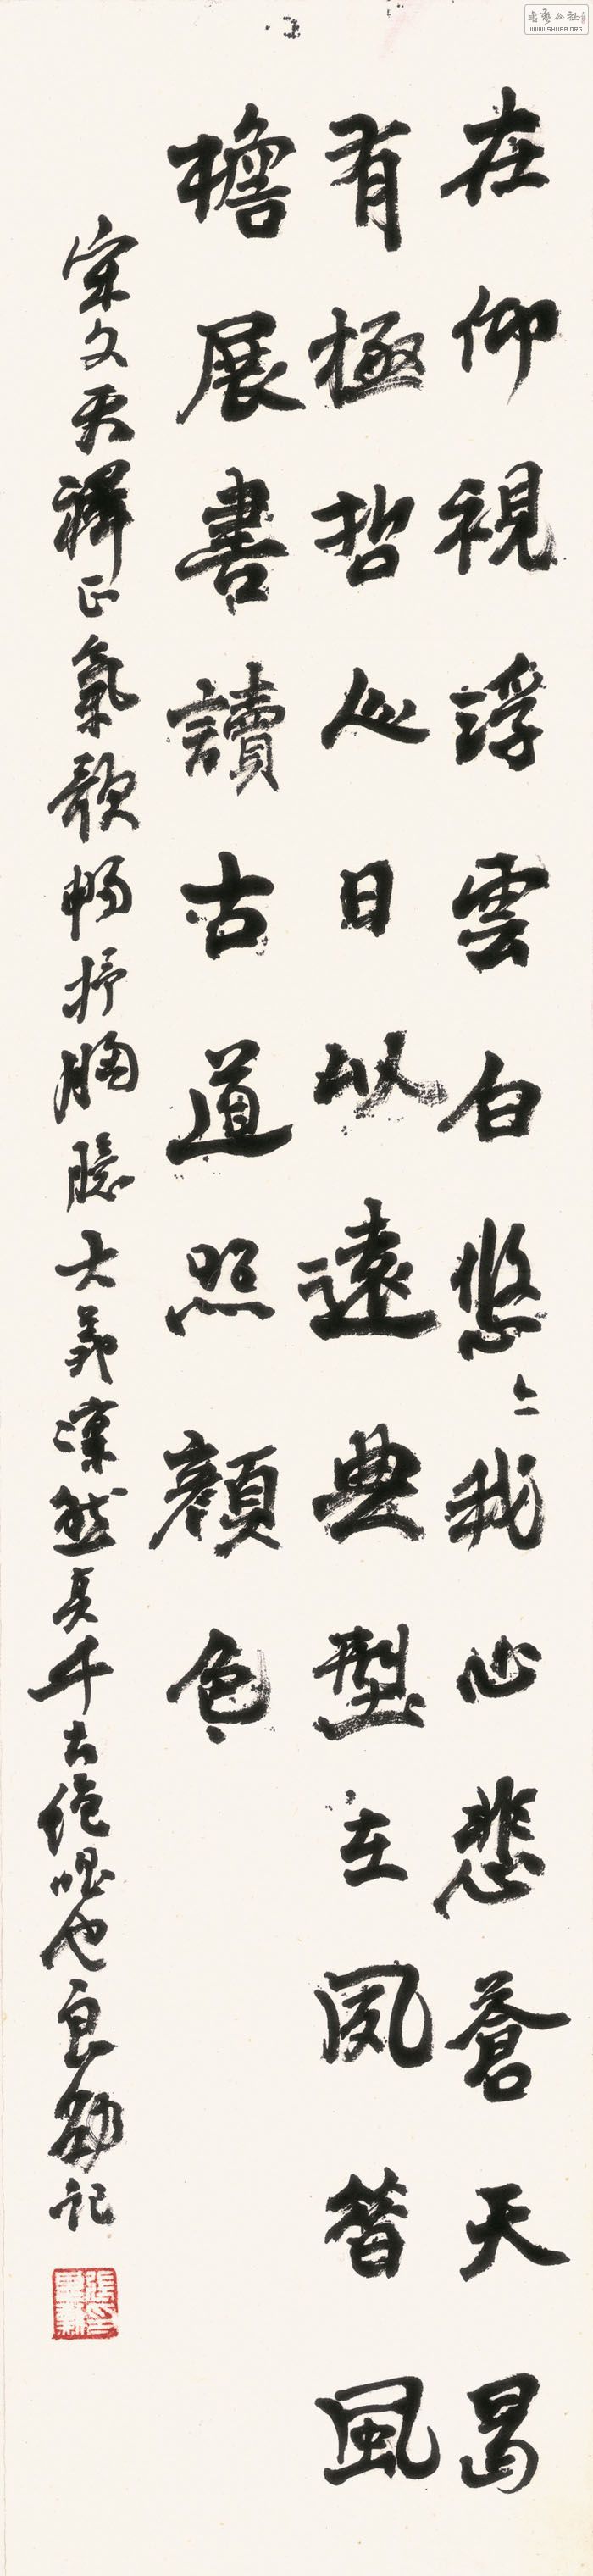 在仰視浮雲白悠〻我心悲蒼天曷
有極哲人日以遠典型在夙昔風
檐展書讀古道照顏色
宋文天祥正氣歌暢抒胸臆大義凜然真千古絕唱也良勛記
WWW.SHUFA.ORG